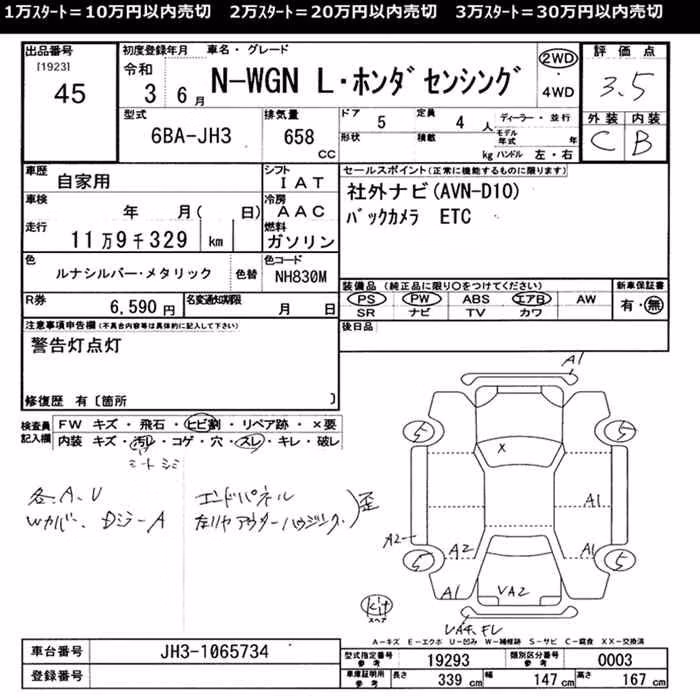 1万ｽﾀｰﾄ＝10万円以内売切　2万ｽﾀｰﾄ＝20万円以内売切　3万ｽﾀｰﾄ＝30万円以内売切
出品番号 初度登録年月 車名・グレード 評価点
[1923] 令和 2WD
45 3 6月 N-WGN L・ホンダセンシング 4WD 3.5
型式 排気量 ドア 5 定員 4人 ディーラー・並行 外装 内装
6BA-JH3 658cc 形状 積載 kg モデル年式 年 ハンドル 左・右 C B
車歴 自家用 シフト IAT セールスポイント(正常に機能するものに限ります)
車検 年 月( 日) 冷房 AAC 社外ナビ(AVN-D10)
走行 11万9千329 km 燃料 ガソリン バックカメラ ETC
色 ルナシルバー・メタリック 色替 色コード NH830M
装備品(純正品に限り○をつけてください) 新車保証書
R券 6,590円 名変通知期限 月 日 PS PW ABS エアB AW 有・無
SR ナビ TV カワ
注意事項申告欄(不具合内容等は具体的に記入して下さい) 後日品
警告灯点灯
修復歴 有〔箇所 〕
検査員記入欄 FW キズ・飛石・ヒビ割・リペア跡・×要
内装 キズ・汚レ・コゲ・穴・スレ・キレ・破レ
シートシミ
各A、U エンドパネル
Wカバー、DジラーA 左リヤアウターハウジング、)歪
A1
5 5
X
A1
A2 A2 A1
5 5
A1 VA2
キ付
スペア
UA4、FU
A－キズ E－エクボ U－凹み W－補修跡 S－サビ C－腐食 XX－交換済
車台番号 JH3-1065734 型式指定番号 参考 19293 類別区分番号 参考 0003
登録番号 車庫証明用 参考 長さ 339cm 幅 147cm 高さ 167cm